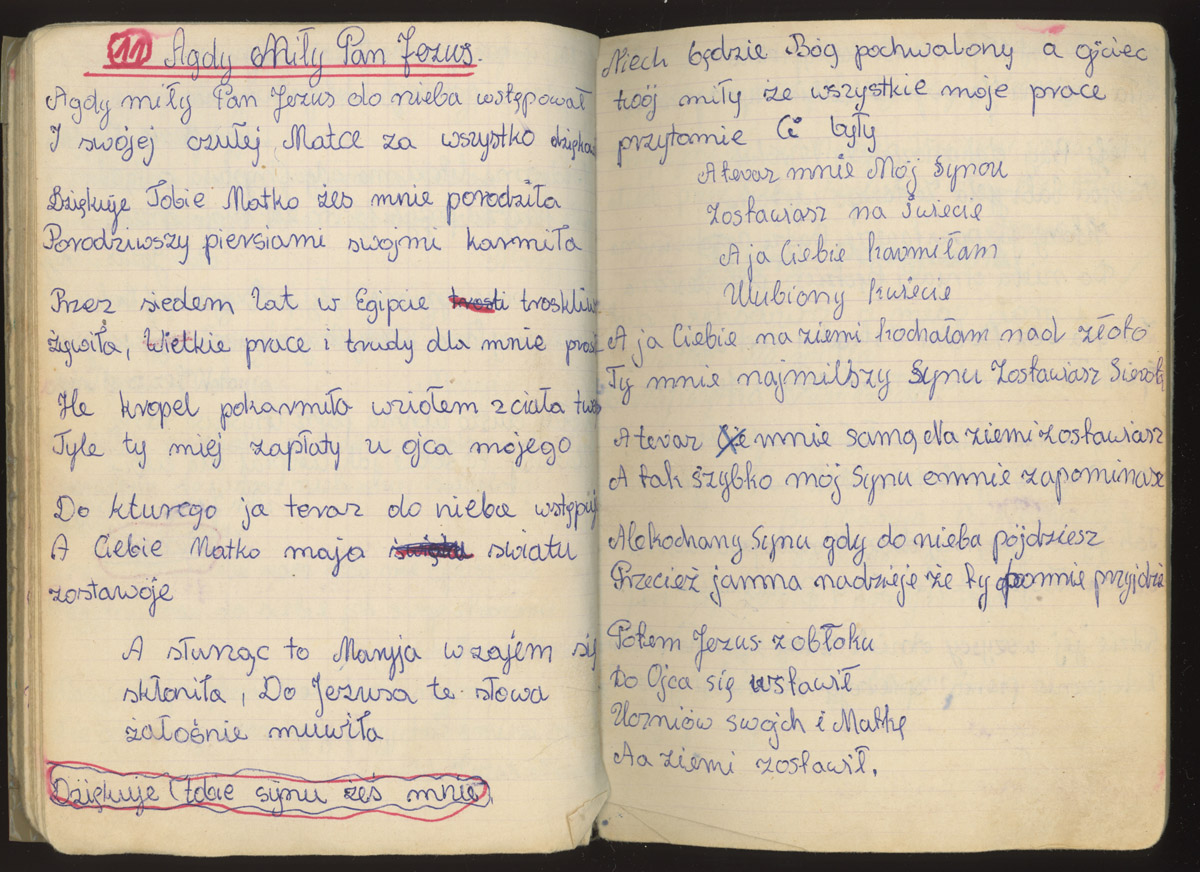 11 Agdy Miły Pan Jezus.
Agdy miły Pan Jezus do nieba wstępował
I swójej czułej Matce za wszystko dzięko
Dziękuje Tobie Matko żeś mnie porodziła
Porodziwszy piersiami swojmi karmiła
Przez siedem lat w Egipcie troskliw
żywiła, Wielkie prace i trudy dla mnie
Ile kropel pokarmiło wziołem z ciała twe
Tyle ty miej zapłaty u ojca mojego
Do kturego ja teraz do nieba wstępuj
A Ciebie Matko maja swiatu
zostawóje
A słurząc to Maryja wzajem się
skłoniła, Do Jezusa te słowa
żałośnie muwiła
Dziękuje (tobie synu żeś mnie)
Niech będzie Bóg pochwalony a ojciec
twój miły że wszystkie moje prace
przytomie Ci były
A teraz mnie Mój Synou
Zostawiasz na Świecie
A ja Ciebie karmiłam
Ulubiony kwiecie
A ja Ciebie na ziemi kochałam nad złoto
Ty mnie najmilszy Synu Zostawiasz Sierotą
A teraz mnie samą Na ziemi zostawiasz
A tak Szybko mój Synu omnie zapominasz
Ale kochany Synu gdy do nieba pójdziesz
Przecież jamna nadzieje że ty pomnie przyjdzie
Potem Jezus z obłoku
Do Ojca się wstawił
Uczniów swojch i Matkę
Aa ziemi zostawił.